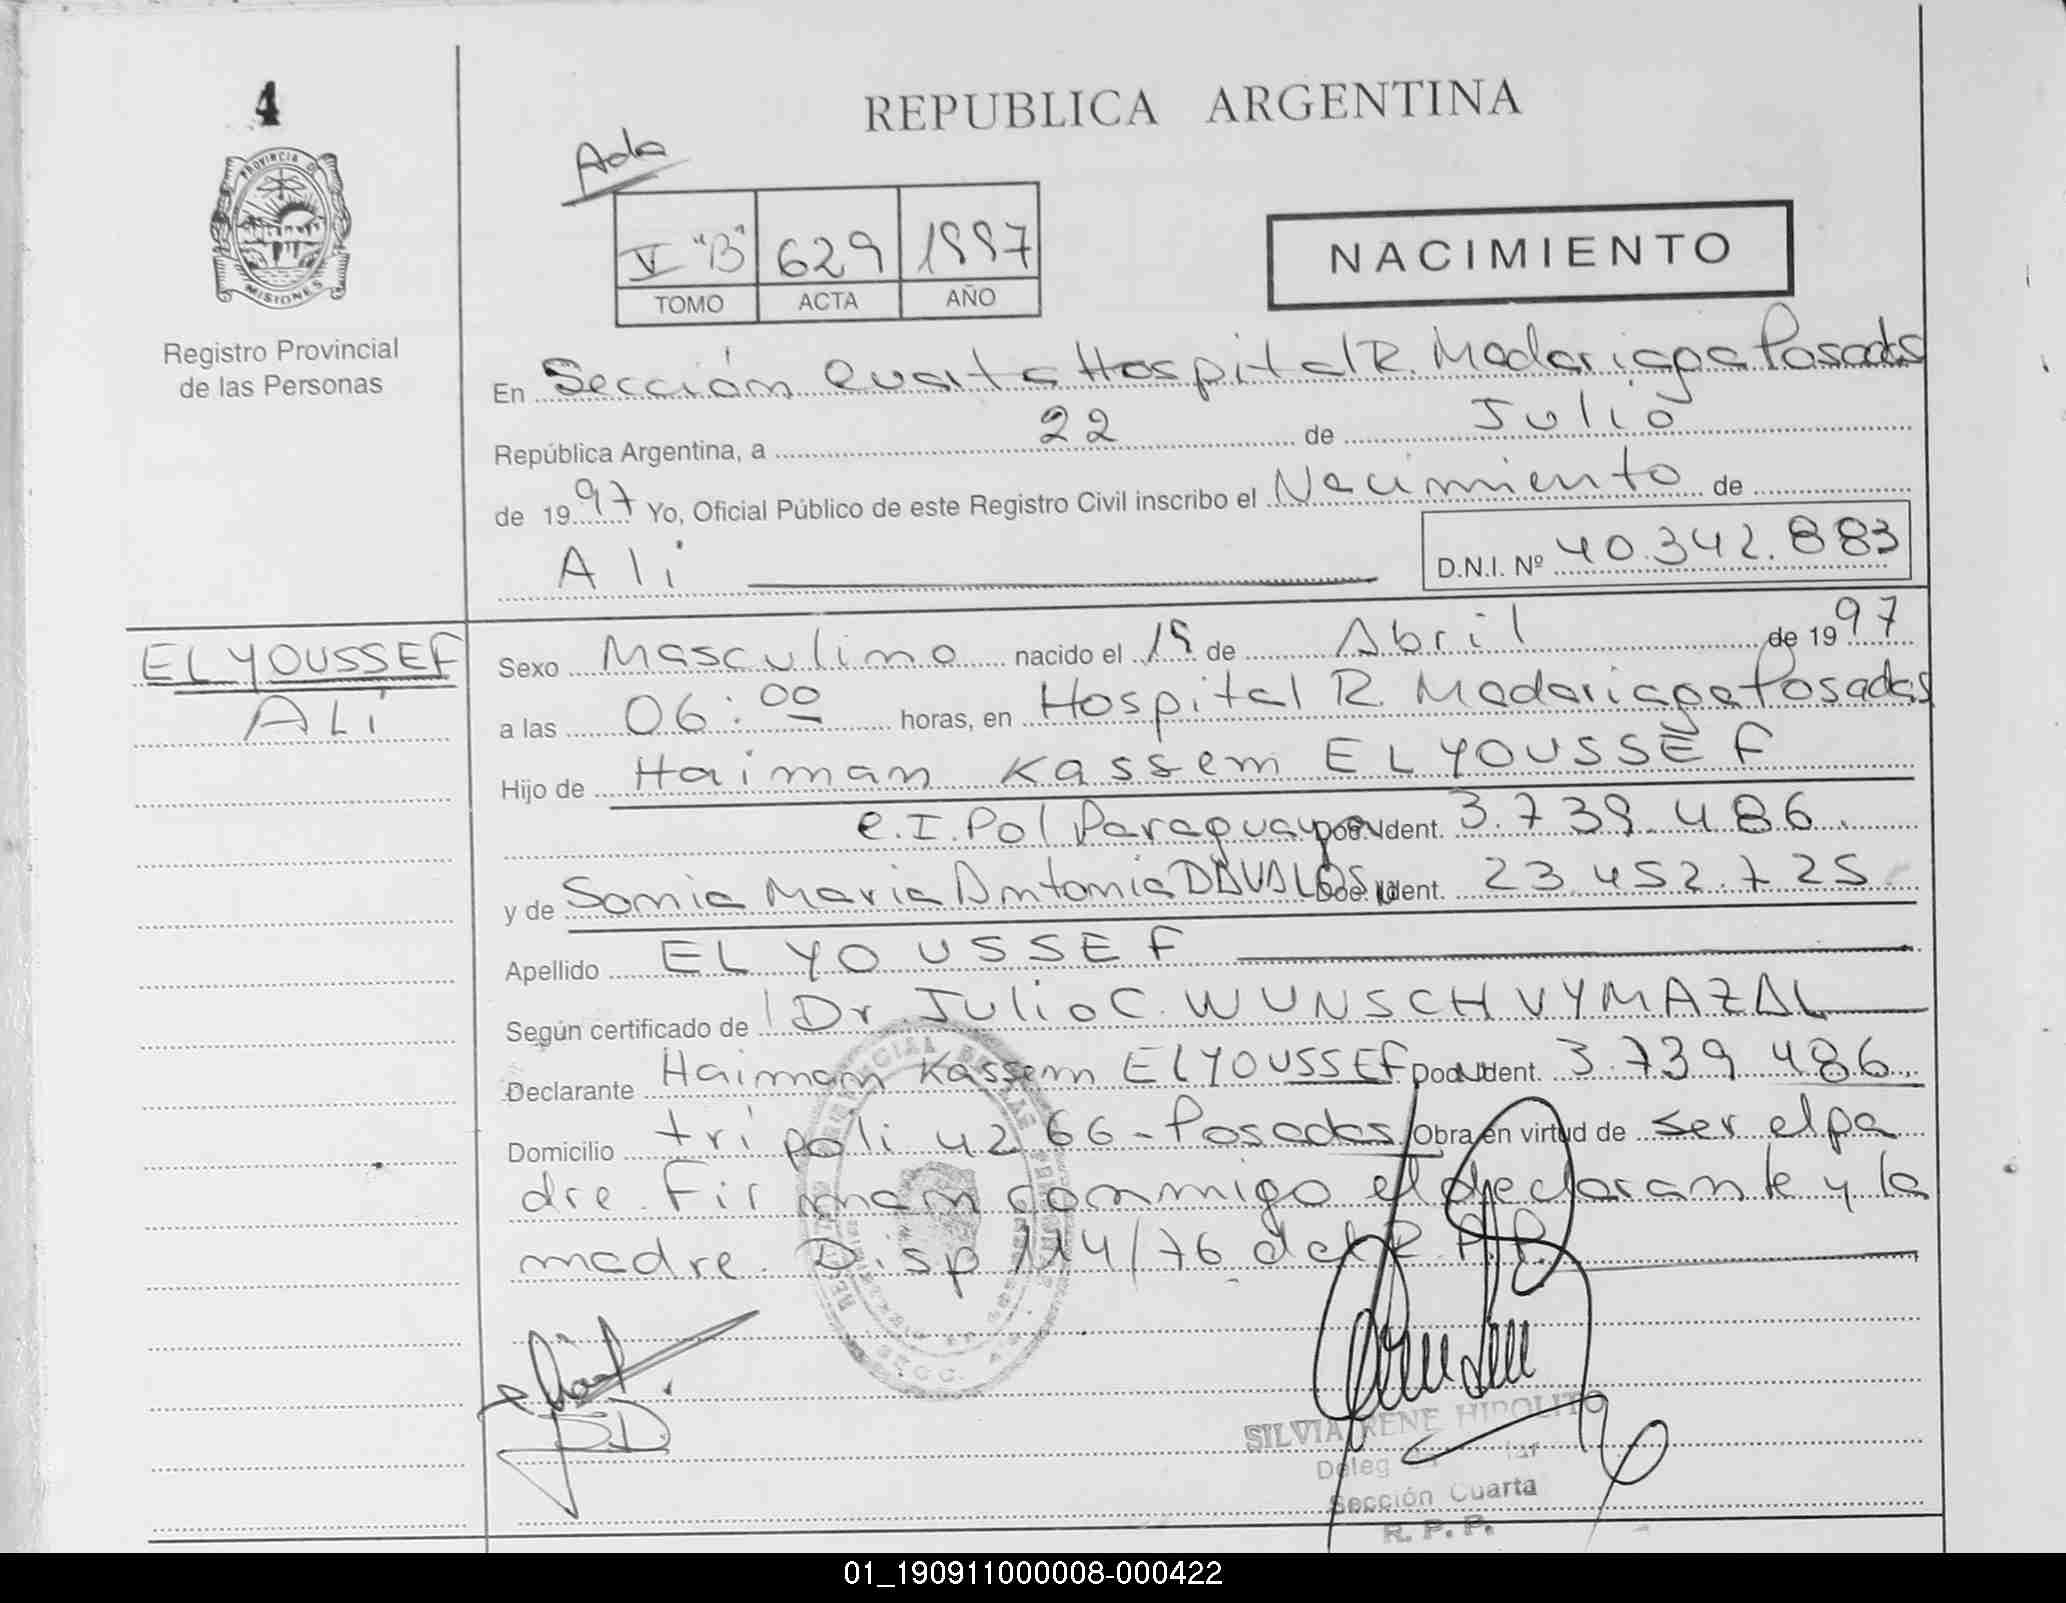 4
REPUBLICA ARGENTINA
PROVINCIA DE
MISIONES
Registro Provincial
de las Personas
V "B" 629 1997
TOMO ACTA AÑO
NACIMIENTO
En Sección Cuarta Hospital R. Madariaga Posadas
República Argentina, a 22 de Julio
de 1997 Yo, Oficial Público de este Registro Civil inscribo el Nacimiento de
Ali
D.N.I. Nº 40.342.883
EL YOUSSEF
ALI
Sexo Masculino nacido el 19 de Abril de 1997
a las 06:00 horas, en Hospital R. Madariaga Posadas
Hijo de Haiman Kassem EL YOUSSEF
C.I. Pol Paraguaya Doc. Ident. 3.739.486.
y de Sonia Maria Antonia DAVALOS Doc. Ident. 23.452.725
Apellido EL YOUSSEF
Según certificado de Dr Julio C. WUNSCH VYMAZAL
Declarante Haimam Kassem EL YOUSSEF Doc. Ident. 3.739.486.
Domicilio tripoli 4266 - Posadas Obra en virtud de ser el pa
dre. Firman conmigo el declarante y la
madre. Disp 114/76 del R.P.P.
SILVIA RENE HIPOLITO
Sección Cuarta
R. P. P.
01_190911000008-000422